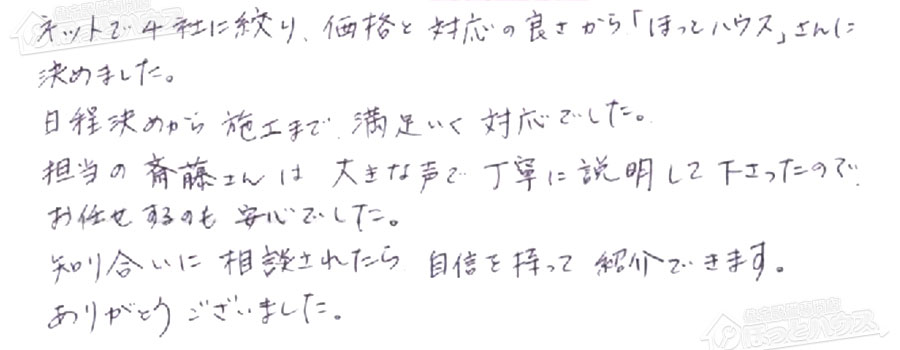 ネットで4社に絞り、価格と対応の良さから「ほっとハウス」さんに
決めました。
日程決めから施工まで満足いく対応でした。
担当の斎藤さんは大きな声で丁寧に説明して下さったので、
お任せするのも安心でした。
知り合いに相談されたら自信を持って紹介できます。
ありがとうございました。
ほっとハウス